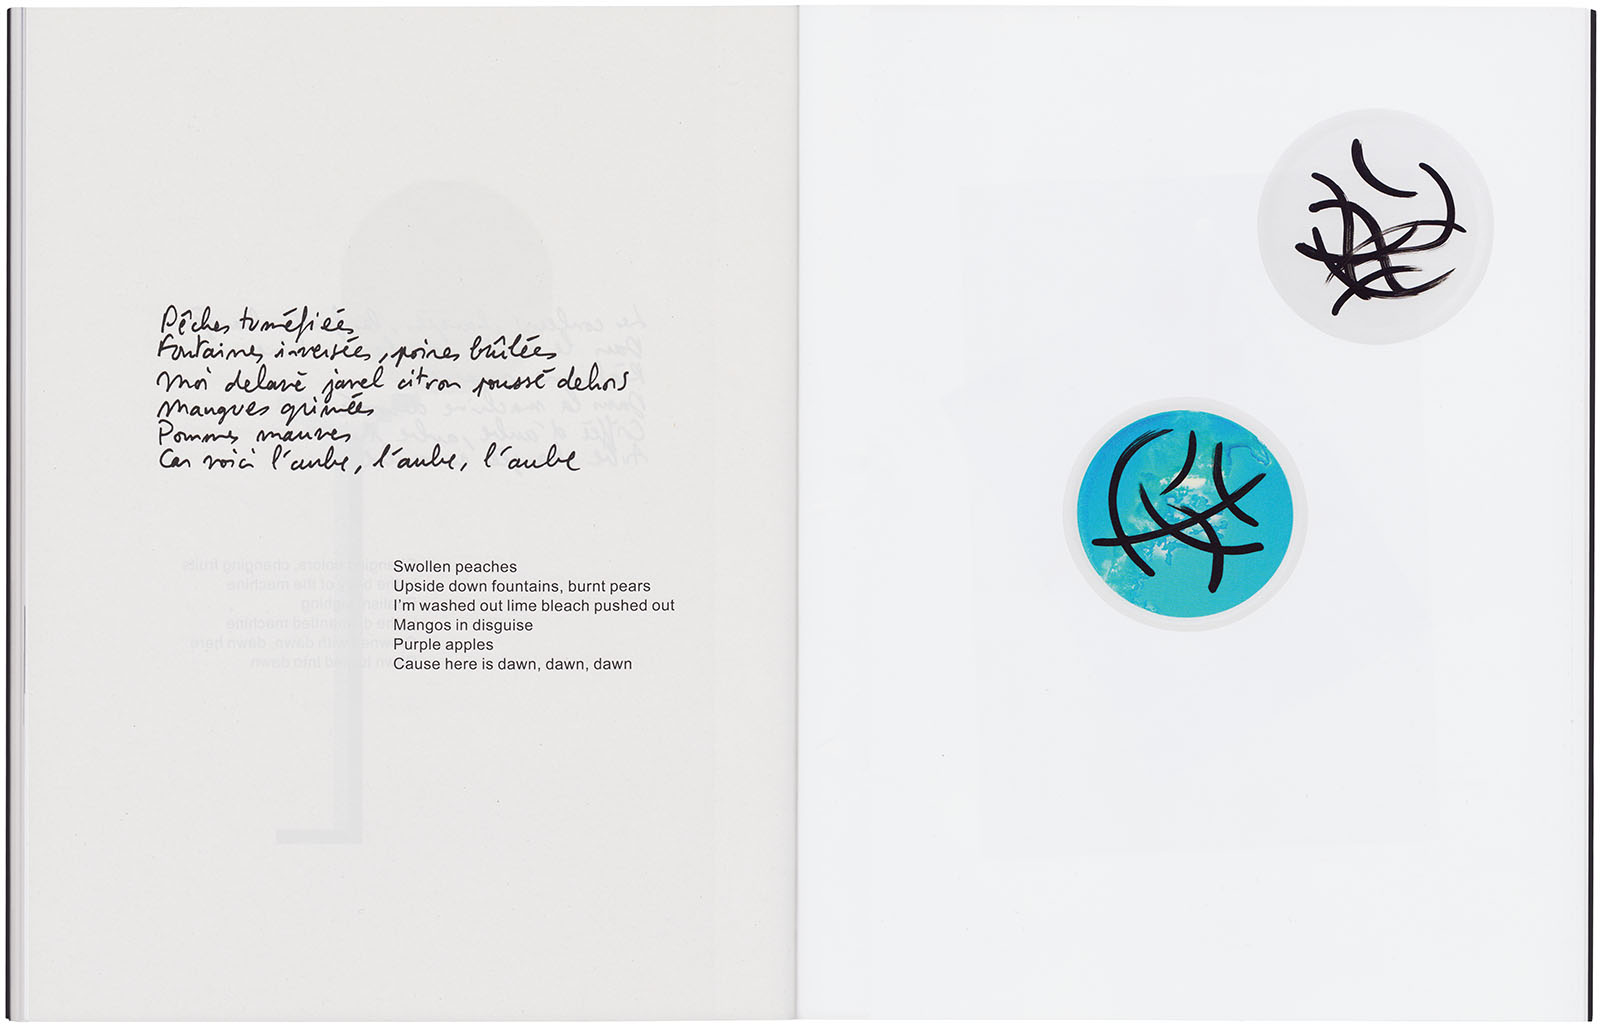 Pêches tuméfiées
Fontaines inversées, poires brûlées
Moi delavé javel citron poussé dehors
Mangues grimées
Pommes mauves
Car voici l'aube, l'aube, l'aube
Swollen peaches
Upside down fountains, burnt pears
I'm washed out lime bleach pushed out
Mangos in disguise
Purple apples
Cause here is dawn, dawn, dawn